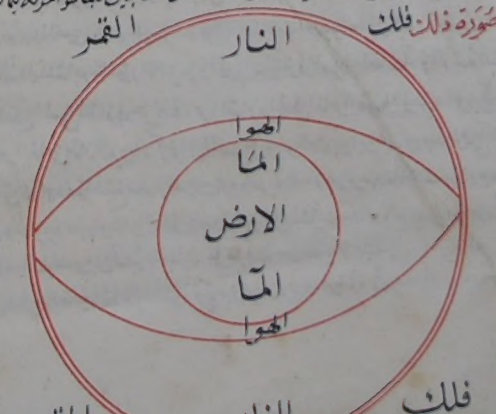 صورة ذلك فلك القمر
النار
الهوا
الما
الارض
المآ
الهوا
فلك النار